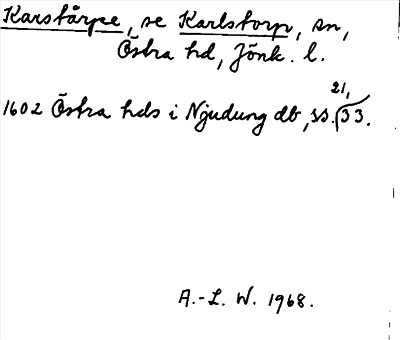 Karstårpe, se Karlstorp, sn,
Östra hd, Jönk. l.
1602 Östra hds i Njudung db, ss. 21, 33.
A.-L. W. 1968.